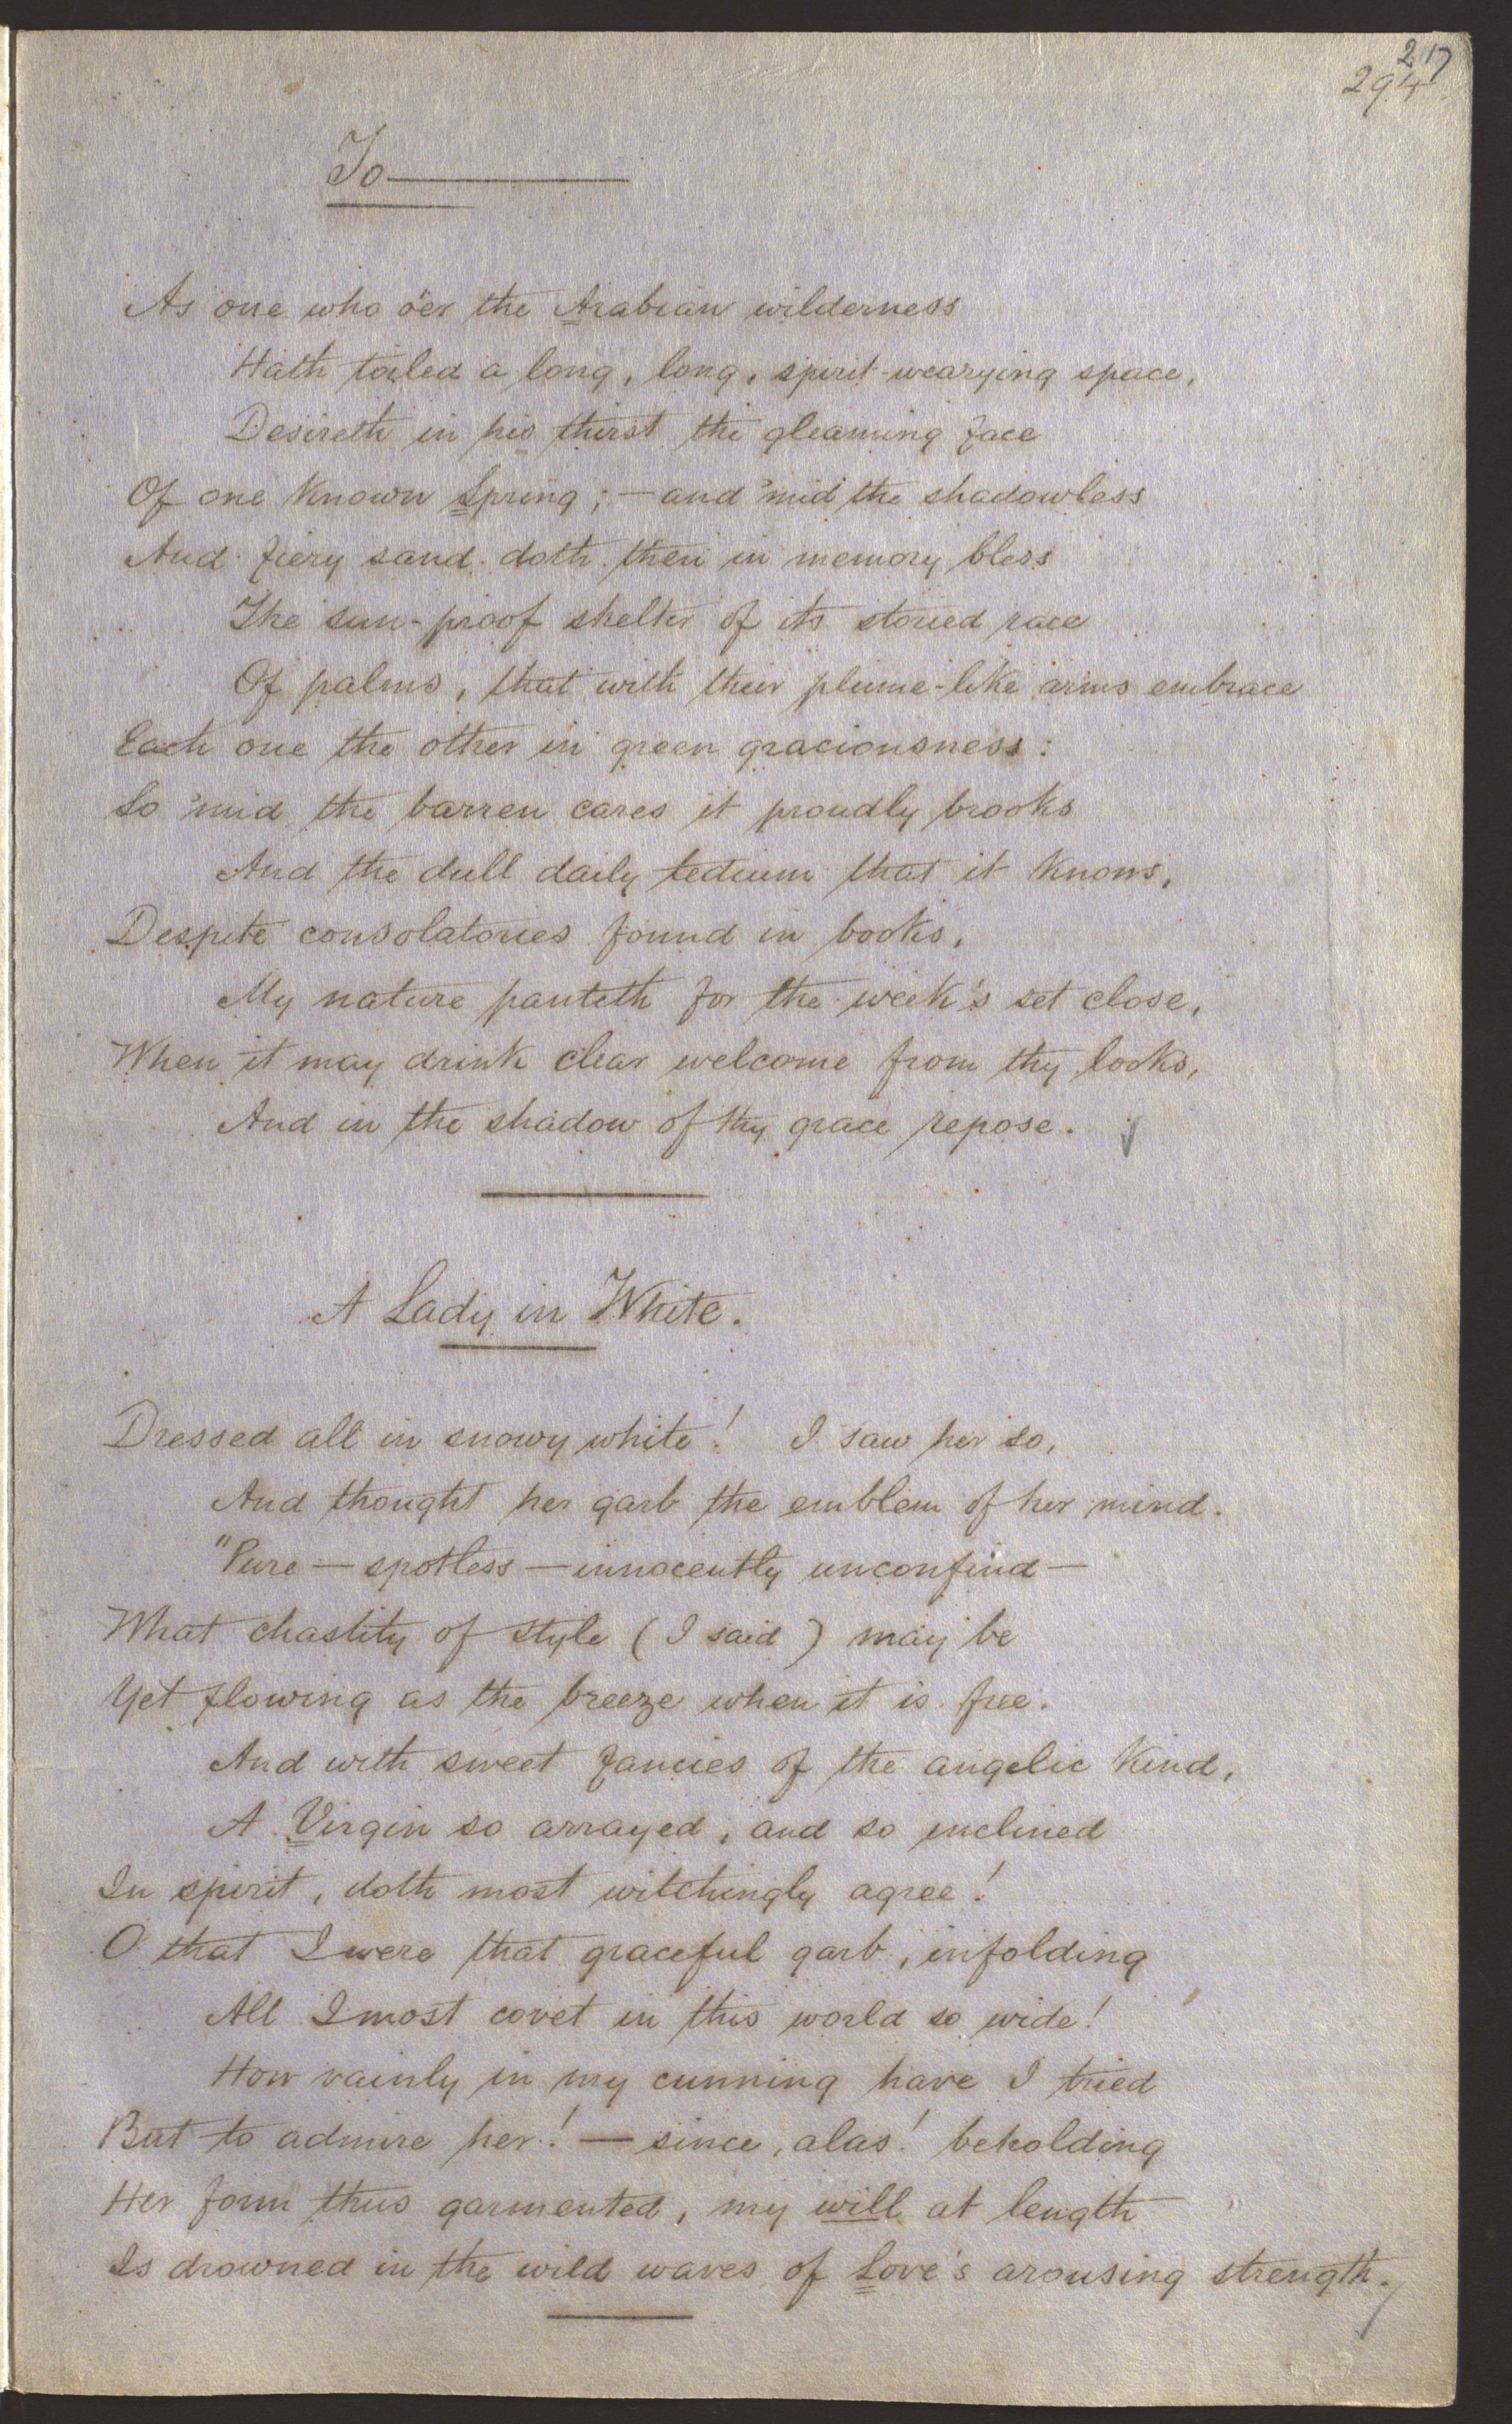 217
294
To ———
As one who o'er the Arabian wilderness
Hath toiled a long, long, spirit-wearying space,
Desireth in his thirst the gleaming face
Of one known Spring; — and 'mid the shadowless
And fiery sand doth then in memory bless
The sun-proof shelter of its storied race
Of palms, that with their plume-like arms embrace
Each one the other in green graciousness:
So 'mid the barren cares it proudly brooks
And the dull daily tedium that it knows,
Despite consolatories found in books,
My nature panteth for the week's set close,
When it may drink clear welcome from thy looks,
And in the shadow of thy grace repose.
A Lady in White.
Dressed all in snowy white! I saw her so,
And thought her garb the emblem of her mind.
"Pure — spotless — innocently unconfind —
What chastity of style (I said) may be
Yet flowing as the breeze when it is free.
And with sweet fancies of the angelic kind,
A Virgin so arrayed, and so inclined
In spirit, doth most witchingly agree!
O that I were that graceful garb, infolding
All I most covet in this world so wide!
How vainly in my cunning have I tried
But to admire her! — since, alas! beholding
Her form thus garmented, my will at length
Is drowned in the wild waves of Love's arousing strength.